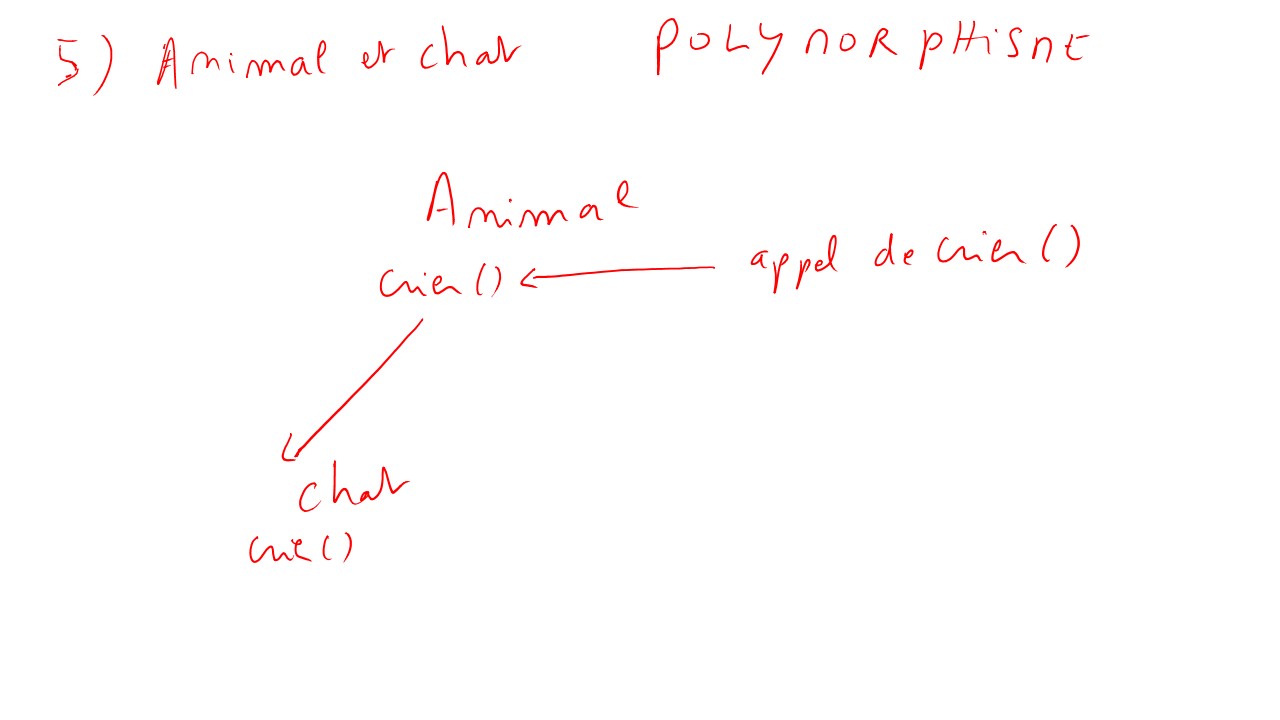 5) Animal et chat POLYMORPHISME
Animal
crier() appel de crier()
chat
crie()